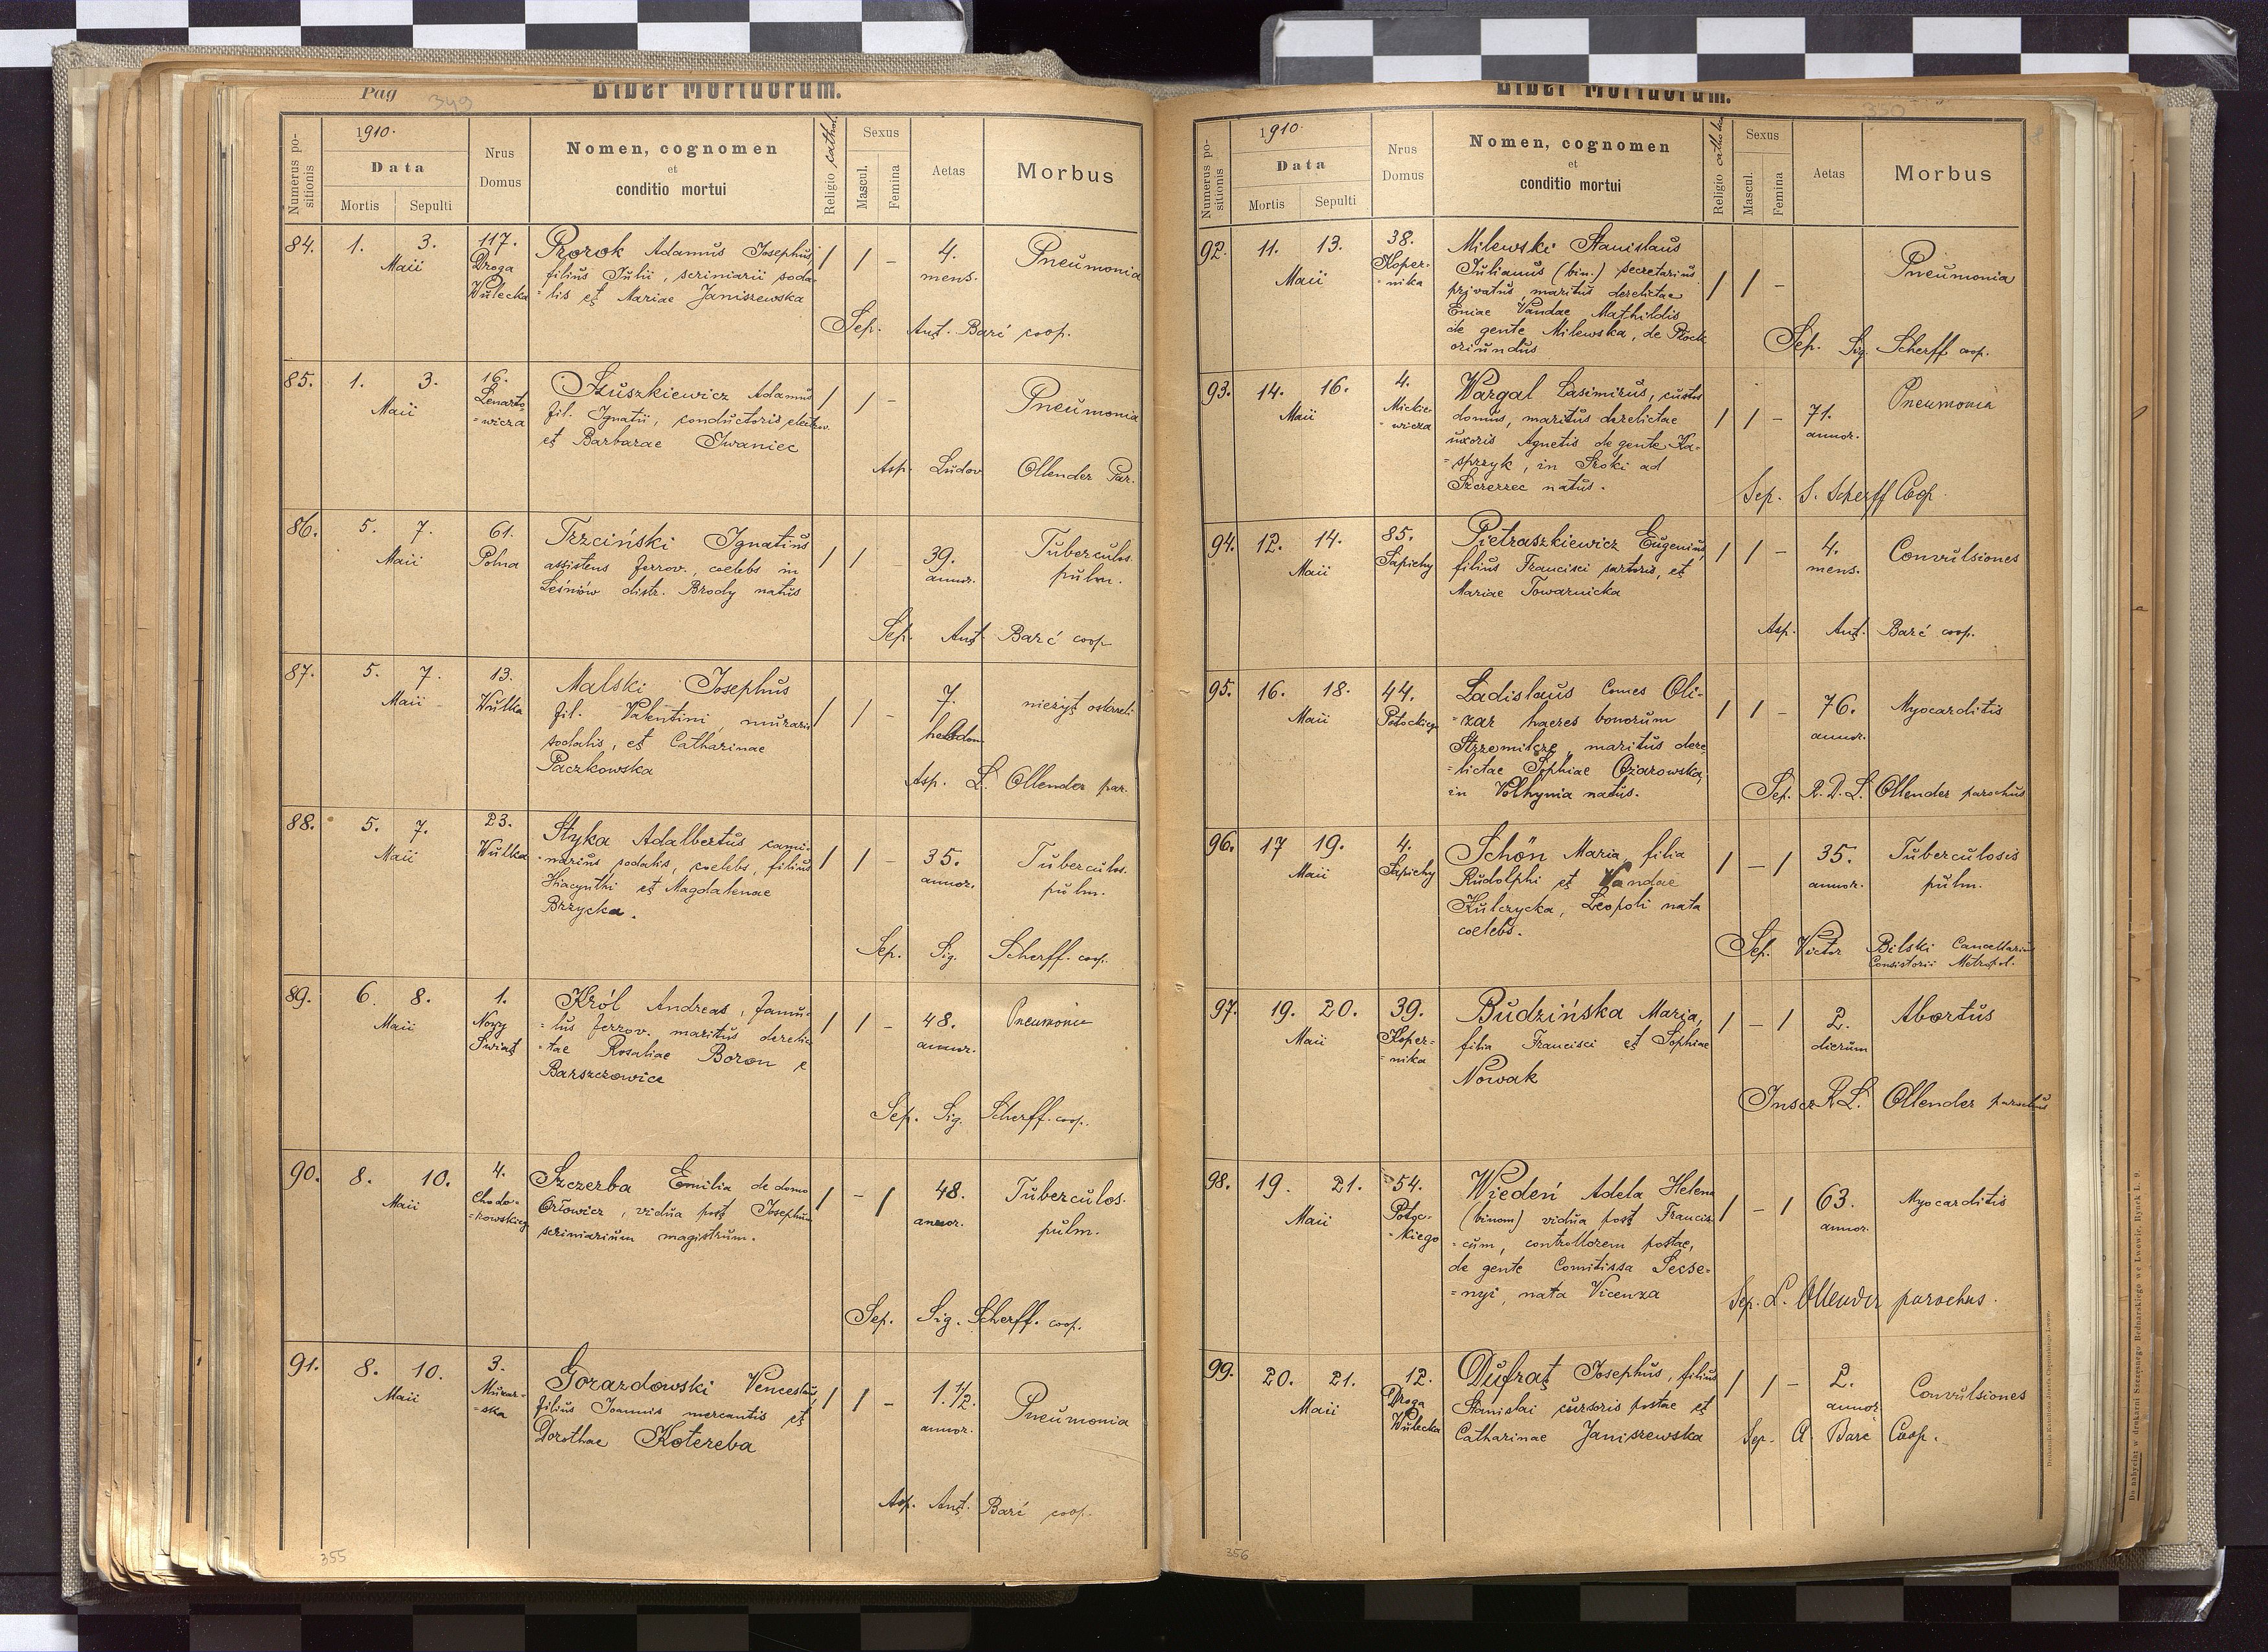 Pag 349 Liber Mortuorum.
Numerus positionis
1910.
Data
Mortis Sepulti
Nrus Domus
Nomen, cognomen
et
conditio mortui
Religio cathol.
Sexus
Mascul. Femina
Aetas
Morbus
84. 1. 3. Maii
117. Droga Wulecka
Prorok Adamus Josephus,
filius Julii, scriniarii soda-
=lis et Mariae Janiszewska
/ / -
4. mens.
Pneumonia
Sep. Ant. Barć coop.
85. 1. 3. Maii
16. Lenarto-
=wicza
Słuszkiewicz Adamus
fil. Ignatii, conductoris electrov.
et Barbarae Iwaniec
/ / -
Pneumonia
Asp. Ludov Ollender Par.
86. 5. 7. Maii
61. Polna
Trzciński Ignatius
assistens ferrov., coelebs in
Leśniów distr. Brody natus
/ / -
39. annor.
Tuberculos.
pulm.
Sep. Ant. Barć coop
87. 5. 7. Maii
13. Wulka
Malski Josephus
fil. Valentini, murarii
sodalis, et Catharinae
Paczkowska
/ / -
7. hebdom
nieżyt oskrzeli
Asp. L. Ollender par.
88. 5. 7. Maii
23. Wulka
Styka Adalbertus cami-
-narius sodalis, coelebs, filius
Hiacynthi et Magdalenae
Brzycka.
/ / -
35. annor.
Tuberculos.
pulm.
Sep. Sig. Scherff. coop.
89. 6. 8. Maii
1. Nowy
Świat
Król Andreas, famu-
=lus ferrov. maritus derelic
-tae Rosaliae Boron e
Barszczowice
/ / -
48. annor.
Pneumonia
Sep. Sig. Scherff. coop.
90. 8. 10. Maii
4. Chodo-
=kowskieg
Szczerba Emilia de domo
Orłowicz, vidua post Josephum
scriniarium magistrum.
/ - /
48. annor.
Tuberculos.
pulm.
Sep. Sig. Scherff. coop.
91. 8. 10. Maii
3. Murar-
=ska
Gorazdowski Venceslaus,
filius Joannis mercantis et
Dorothae Kotereba
/ / -
1. 1/2. annor.
Pneumonia
Asp. Ant. Barć coop.
355
Liber Mortuorum. 350
Numerus positionis
1910.
Data
Mortis Sepulti
Nrus Domus
Nomen, cognomen
et
conditio mortui
Religio catholica
Sexus
Mascul. Femina
Aetas
Morbus
92. 11. 13. Maii
38. Koper-
=nika
Milewski Stanislaus
Julianus (bin.) secretarius
privatus, maritus derelictae
Eniae Vandae Mathildis
de gente Milewska, de Płock
oriundus
/ / -
Pneumonia
Sep. Sig. Scherff coop.
93. 14. 16. Maii
4. Mickie-
=wicza
Wargal Casimirus, custos
domus, maritus derelictae
uxoris Agnetis de gente Ka-
=sprzyk, in Sroki ad
Szczerzec natus.
/ / -
71. annor.
Pneumonia
Sep. S. Scherff Coop.
94. 12. 14. Maii
85. Sapichy
Pietraszkiewicz Eugenius,
filius Francisci sartoris, et
Mariae Towarnicka
/ / -
4. mens.
Convulsiones
Asp. Ant. Barć coop.
95. 16. 18. Maii
44. Potockiego
Ladislaus Comes Oli-
=zar haeres bonorum
Strzemilcze, maritus dere
=lictae Sophiae Ożarowska,
in Volhynia natus.
/ / -
76. annor.
Myocarditis
Sep. R. D. L. Ollender parochus
96. 17 19. Maii
4. Sapichy
Schön Maria, filia
Rudolphi et Vandae
Kulczycka, Leopoli nata
coelebs.
/ - /
35. annor.
Tuberculosis
pulm.
Sep. Victor Bilski Cancellarius
Consistorii Metropol.
97. 19. 20. Maii
39. Koper=
=nika
Budzińska Maria,
filia Francisci et Sophiae
Nowak
/ - /
2. dierum
Abortus
Inscr R L. Ollender parochus
98. 19. 21. Maii
54. Potoc-
=kiego
Wiedeń Adela Helena
(binom) vidua post Francis-
=cum, controllorem postae,
de gente Comitissa Secse=
=nyi, nata Vicenza
/ - /
63. annor.
Myocarditis
Sep. L. Ollender parochus.
99. 20. 21. Maii
12. Droga
Wulecka
Dufrat Josephus, filius
Stanislai cursoris postae et
Catharinae Janiszewska
/ / -
2. annor
Convulsiones
Sep. A. Barć Coop.
356
Do nabycia w drukarni Szczęsnego Bednarskiego we Lwowie, Rynek L. 9.